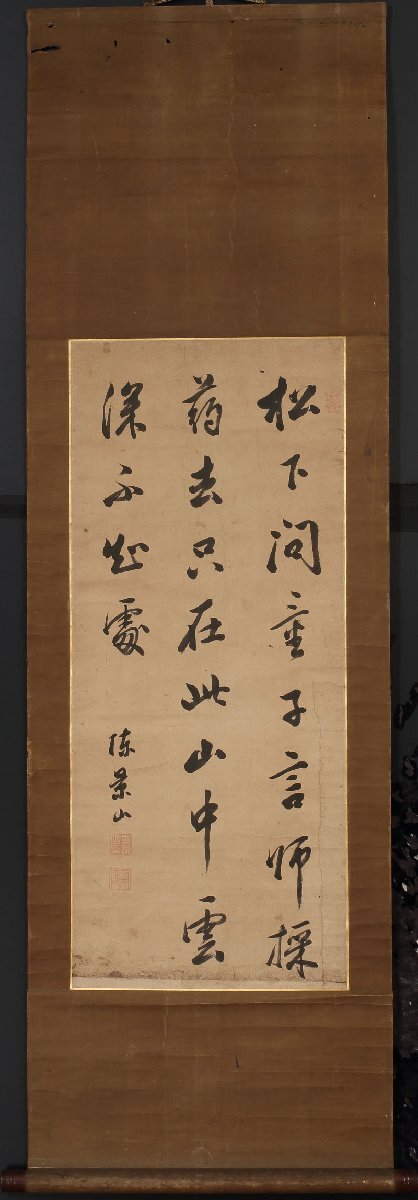 松下问童子言师採
药去只在此山中雲
深不知處
陈景山